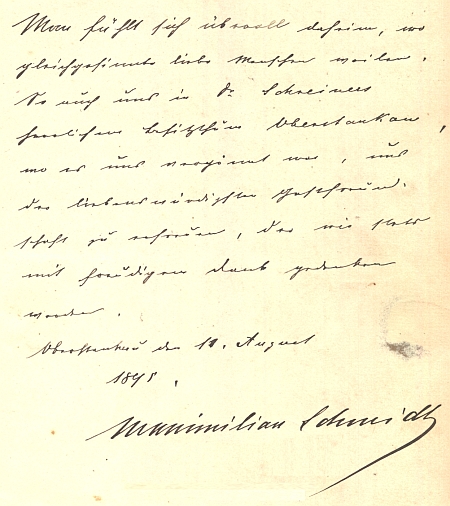 Man fühlt sich überall daheim, wo
gleichgesinnte liebe Menschen weilen.
So auch uns in Dr. Schreiners
herrlichem Besitzthum Oberstankau,
wo es uns vergönnt war, uns
der liebenswürdigsten Gastfreund-
schaft zu erfreuen, der wir stets
mit freudigem Dank gedenken
werden.
Oberstankau den 11. August
1895.
Maximilian Schmidt